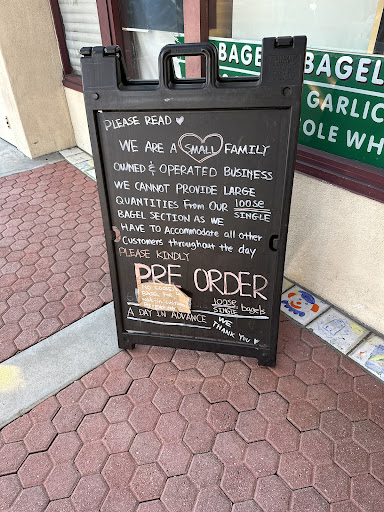 BAGEL
BAGEL
GARLIC
OLE WH
PLEASE READ
WE ARE A SMALL FAMILY
OWNED & OPERATED BUSINESS
WE CANNOT PROVIDE LARGE
QUANTITIES FROM OUR loose SINGLE
BAGEL SECTION AS WE
HAVE TO ACCOMMODATE all other
Customers throughout the day
PLEASE KINDLY
PRE ORDER
loose SINGLE bagels
A DAY IN ADVANCE
WE
THANK YOU